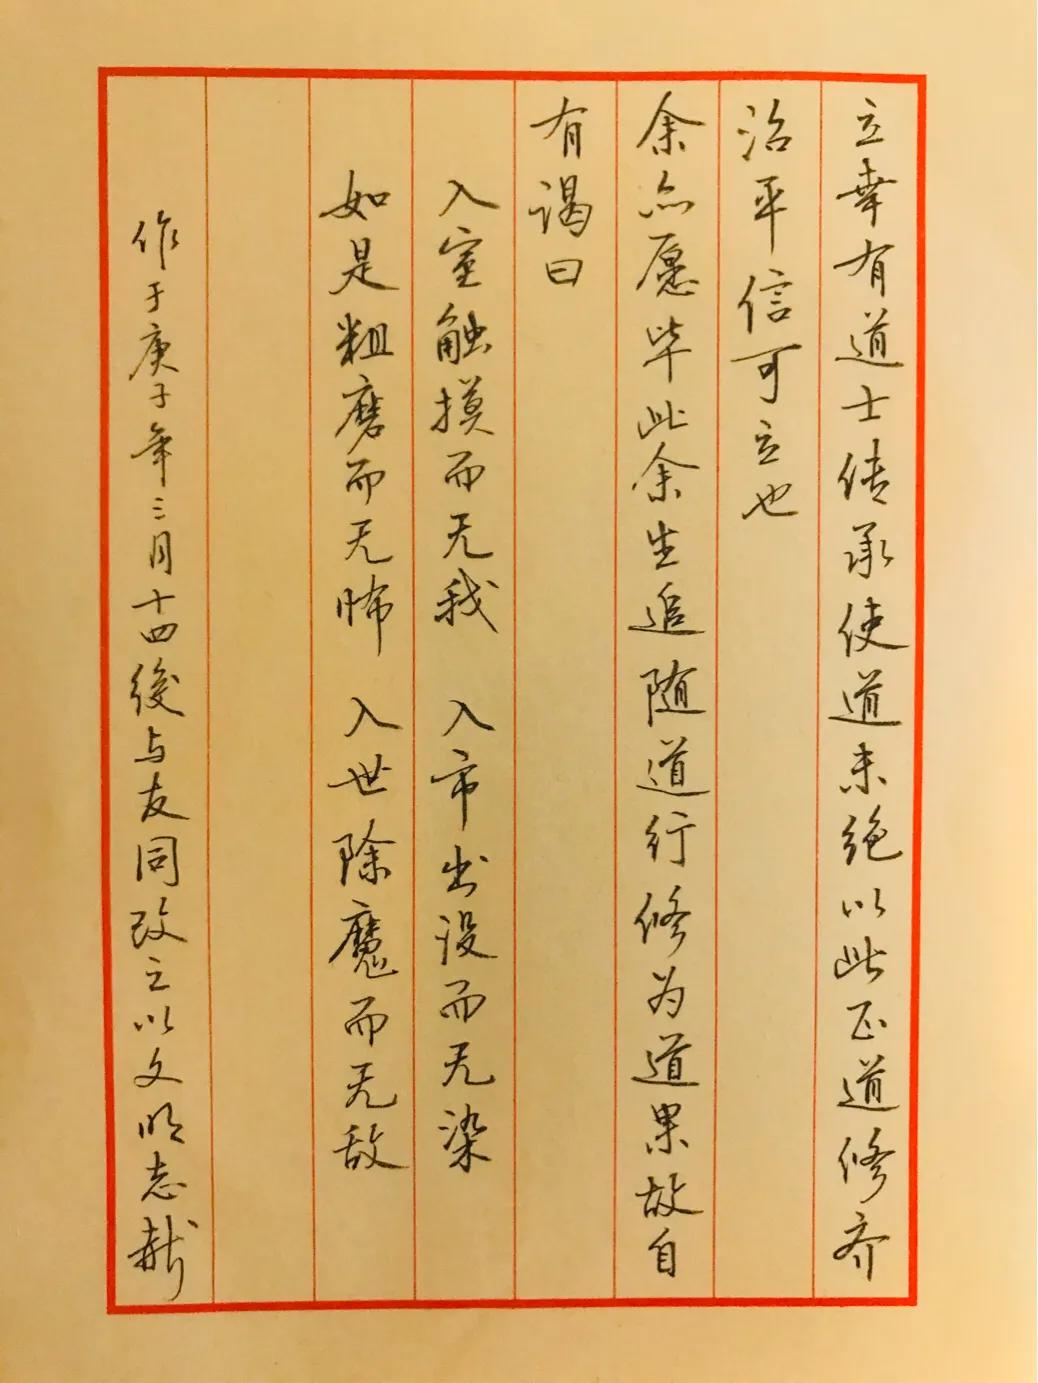 立幸有道士传承使道未绝以此正道修齐
治平信可立也
余亦愿毕此余生追随道行修为道果故自
有谒曰
入室触摸而无我 入市出没而无染
如是粗磨而无怖 入世除魔而无敌
作于庚子年三月十四後与友同改之以文明志